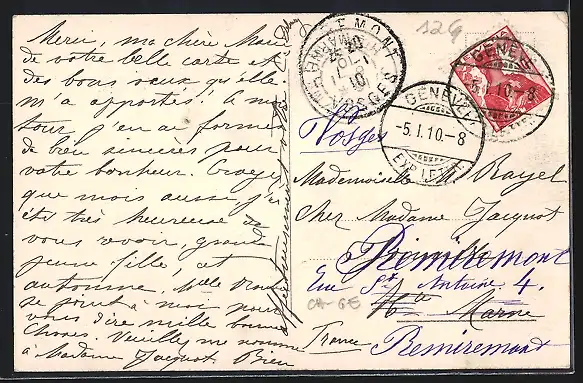 Merci, ma chère M
de votre belle carte et
des bons vœux qu'elle
m'a apportés! A mon
tour j'en ai formé
de bien sincères pour
votre bonheur. Croyez
que moi aussi, j'ai
été très heureuse de
vous revoir, grande
jeune fille, cet
automne. Melle
se joint à moi pour
vous dire mille bonnes
choses. Veuillez me nommer
à Madame Jacquot. Bien
affectueusement
126
REMIREMONT
VOSGES
GENÈVE
-5.I.10.-8
EXP. LETT.
GENÈVE
-5.I.10-8
Vosges
Mademoiselle M. Rayel
Chez Madame Jacquot
Remiremont
Rue St Antoine 4.
CH-GE
Hte Marne
France
Remiremont